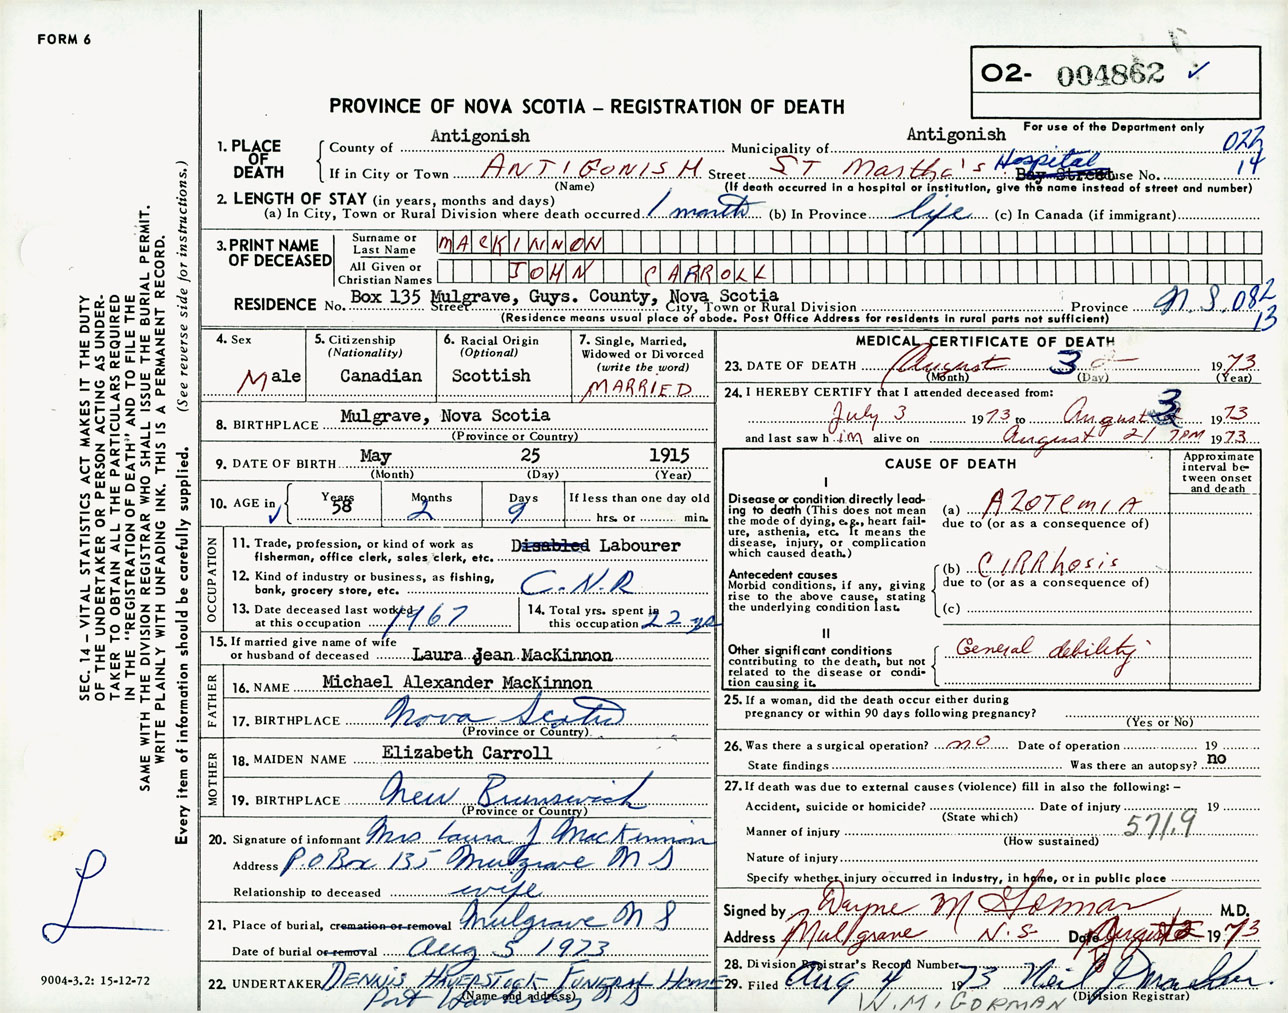 FORM 6
O2- 004862 ✓
PROVINCE OF NOVA SCOTIA – REGISTRATION OF DEATH
For use of the Department only
1. PLACE OF DEATH
County of Antigonish Municipality of Antigonish 022
If in City or Town ANTIGONISH Street ST Martha's Hospital Bay Street House No. 14
(Name) (If death occurred in a hospital or institution, give the name instead of street and number)
2. LENGTH OF STAY (in years, months and days)
(a) In City, Town or Rural Division where death occurred 1 month (b) In Province life (c) In Canada (if immigrant)
3. PRINT NAME OF DECEASED
Surname or Last Name MACKINNON
All Given or Christian Names JOHN CARROLL
RESIDENCE No. Box 135 Mulgrave, Guys. County, Nova Scotia Street City, Town or Rural Division Province N.S. 082
(Residence means usual place of abode. Post Office Address for residents in rural parts not sufficient) 13
4. Sex Male
5. Citizenship (Nationality) Canadian
6. Racial Origin (Optional) Scottish
7. Single, Married, Widowed or Divorced (write the word) MARRIED
8. BIRTHPLACE Mulgrave, Nova Scotia
(Province or Country)
9. DATE OF BIRTH May 25 1915
(Month) (Day) (Year)
10. AGE in Years 58 Months 2 Days 9 If less than one day old hrs. or min.
OCCUPATION
11. Trade, profession, or kind of work as fisherman, office clerk, sales clerk, etc. Disabled Labourer
12. Kind of industry or business, as fishing, bank, grocery store, etc. C.N.R
13. Date deceased last worked at this occupation 1967
14. Total yrs. spent in this occupation 22 yrs
15. If married give name of wife or husband of deceased Laura Jean MacKinnon
FATHER
16. NAME Michael Alexander MacKinnon
17. BIRTHPLACE Nova Scotia
(Province or Country)
MOTHER
18. MAIDEN NAME Elizabeth Carroll
19. BIRTHPLACE New Brunswick
(Province or Country)
20. Signature of informant Mrs Laura J MacKinnon
Address P.O Box 135 Mulgrave N S
Relationship to deceased wife
21. Place of burial, cremation or removal Mulgrave N S
Date of burial or removal Aug 5 1973
22. UNDERTAKER DENNIS HAVERSTOCK FUNERAL HOME
Port N S
(Name and address)
MEDICAL CERTIFICATE OF DEATH
23. DATE OF DEATH August 3 1973
(Month) (Day) (Year)
24. I HEREBY CERTIFY that I attended deceased from:
July 3 1973 to August 3 1973
and last saw him alive on August 2/ 7PM 1973
CAUSE OF DEATH
Approximate interval between onset and death
I
Disease or condition directly leading to death (This does not mean the mode of dying, e.g., heart failure, asthenia, etc. It means the disease, injury, or complication which caused death.)
(a) AZOTEMIA
due to (or as a consequence of)
Antecedent causes
Morbid conditions, if any, giving rise to the above cause, stating the underlying condition last.
(b) CIRRHOSIS
due to (or as a consequence of)
(c)
II
Other significant conditions contributing to the death, but not related to the disease or condition causing it.
General debility
25. If a woman, did the death occur either during pregnancy or within 90 days following pregnancy?
(Yes or No)
26. Was there a surgical operation? no Date of operation 19
State findings Was there an autopsy? no
27. If death was due to external causes (violence) fill in also the following: –
Accident, suicide or homicide? Date of injury 19
(State which)
Manner of injury 571.9
(How sustained)
Nature of injury
Specify whether injury occurred in industry, in home, or in public place
Signed by Wayne M Gorman M.D.
Address Mulgrave N.S Date August 1973
28. Division Registrar's Record Number
29. Filed Aug 4 1973 Neil J
(Division Registrar)
W.M. GORMAN
SEC.14 – VITAL STATISTICS ACT MAKES IT THE DUTY
OF THE UNDERTAKER OR PERSON ACTING AS UNDER-
TAKER TO OBTAIN ALL THE PARTICULARS REQUIRED
IN THE "REGISTRATION OF DEATH" AND TO FILE THE
SAME WITH THE DIVISION REGISTRAR WHO SHALL ISSUE THE BURIAL PERMIT.
WRITE PLAINLY WITH UNFADING INK. THIS IS A PERMANENT RECORD.
Every item of information should be carefully supplied. (See reverse side for instructions.)
L
9004-3.2: 15-12-72